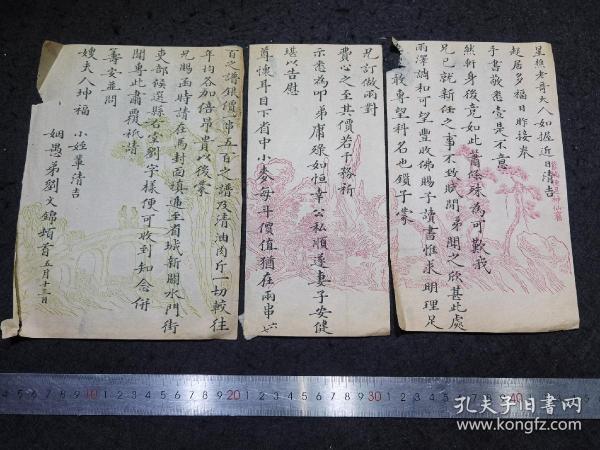 星樵老哥大人如握近日清吉
起居多福日昨接奉
手書敬悉壹是不意
然軒身後竟如此蕭條殊為可歎我
兄已就新任之事不致賦閒弟聞之欣甚此處
雨澤調和可望豐收佛賜子讀書惟求明理足
敢專望科名也鎖子蒙
兄訂做兩對
費心之至其價若干務祈
示悉為叩弟庸碌如恒幸公私順遂妻子安健
堪以告慰
尊懷耳目下省中小麥每年價值猶在兩串六
百之譜銀價一串五百之譜及清油肉斤一切較往
年均各加倍昂貴以後蒙
兄賜函時請在馬封面填遞至省城新關水門街
吏部候選縣右堂劉字樣便可收到知念併
聞專此肅覆祗請
籌安並問
嫂夫人坤福 小姪輩清吉
姻愚弟劉文錦頓首 五月十三日
10 20 30 40
孔夫子旧书网
www.kongfz.com